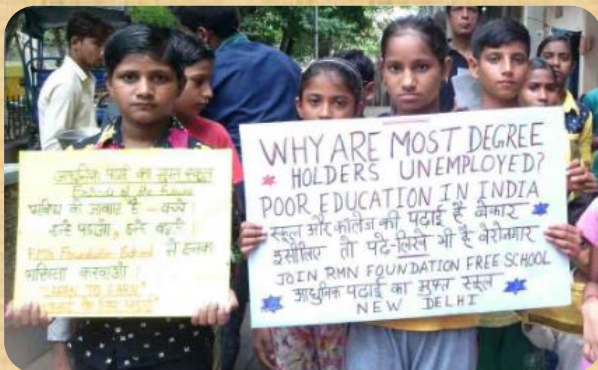 आधुनिक पढ़ाई का मुफ्त स्कूल
भविष्य के आधार है - बच्चे।
इन्हें पढ़ाओ, इन्हें बढ़ाओ।
RMN Foundation School में इनका
दाखिला करवाओ।
"LEARN TO EARN"
के लिए पढ़ाई
WHY ARE MOST DEGREE
HOLDERS UNEMPLOYED?
POOR EDUCATION IN INDIA
स्कूल और कॉलेज की पढ़ाई है बेकार
इसीलिए तो पढे-लिखे भी है बेरोजगार
JOIN RMN FOUNDATION FREE SCHOOL
आधुनिक पढ़ाई का मुफ्त स्कूल
NEW DELHI